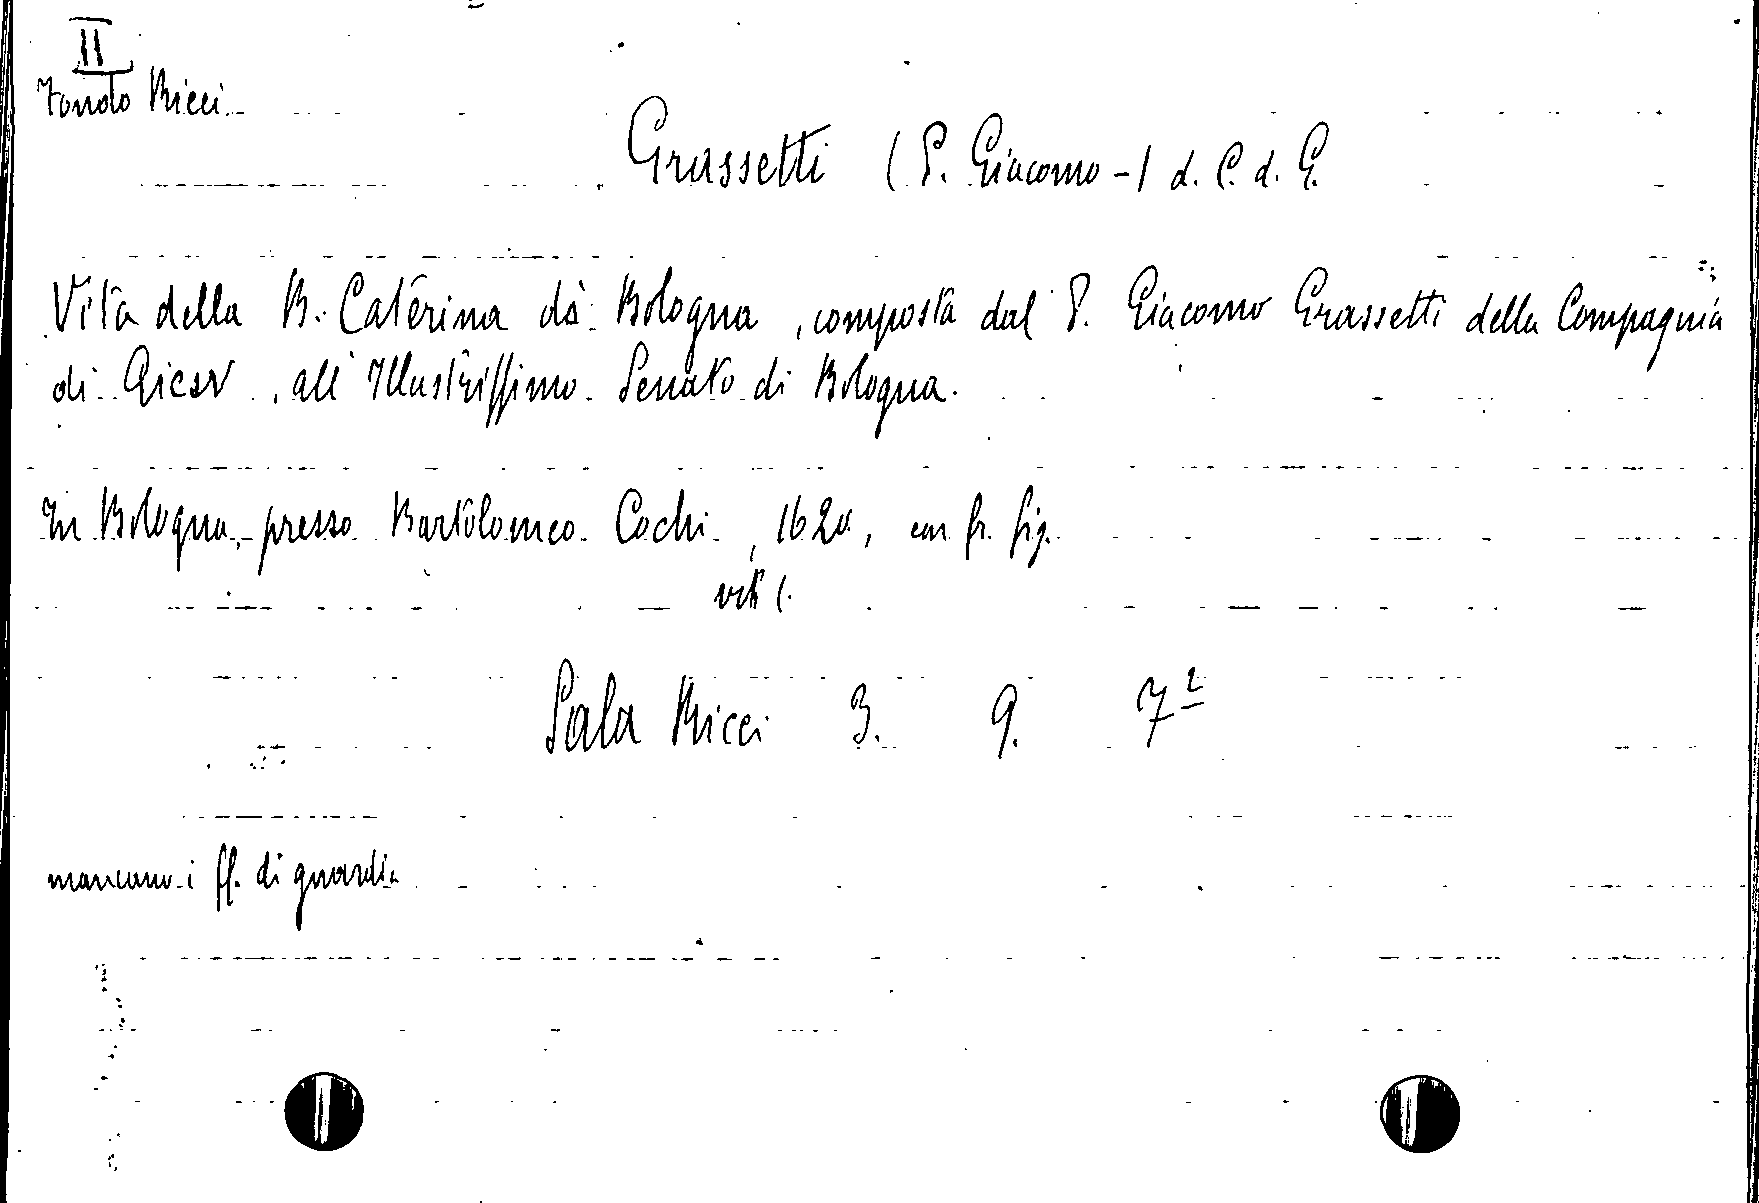 II
Fondo Ricci
Grassetti (P. Giacomo -) d. C. d. G.
Vita della B. Caterina da Bologna, composta dal P. Giacomo Grassetti della Compagnia
di Giesv, all' Illustrissimo Senato di Bologna.
In Bologna, presso Bartolomeo Cochi, 1620, con fr. fig.
Sala Ricci 3. 9. 7²
mancano i ff. di guardia